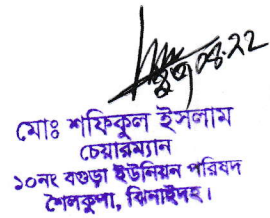 মোঃ শফিকুল ইসলাম
চেয়ারম্যান
১০নং বগুড়া ইউনিয়ন পরিষদ
শৈলকুপা, ঝিনাইদহ।